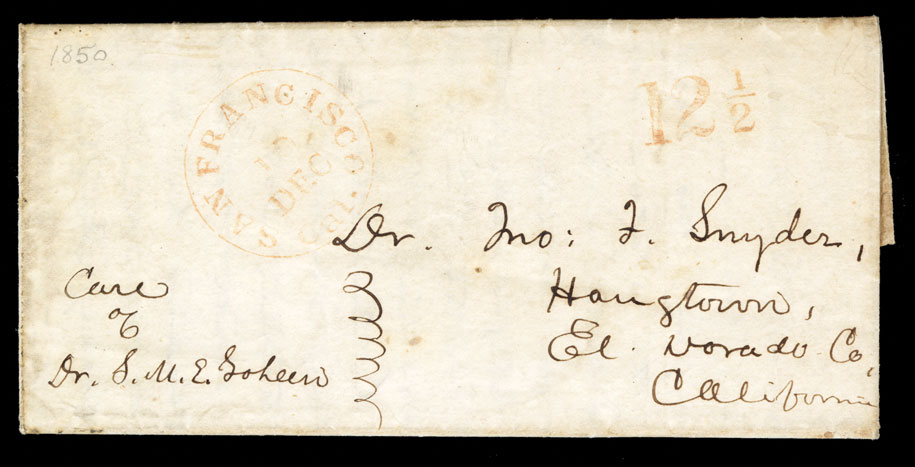 1850.
SAN FRANCISCO
DEC
Cal.
12 1/2
Dr. Jno: F. Snyder,
Hangtown,
El. Dorado Co,
California
Care
of
Dr. S. M. E. Goheen